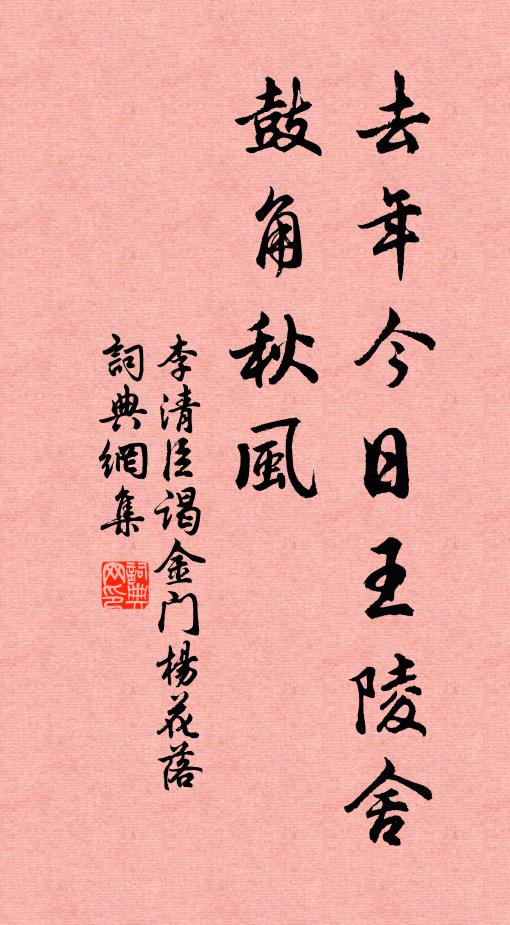 去年今日王陵舍
鼓角秋風
李清臣謁金门楊花落
詞典網集
詞典网印